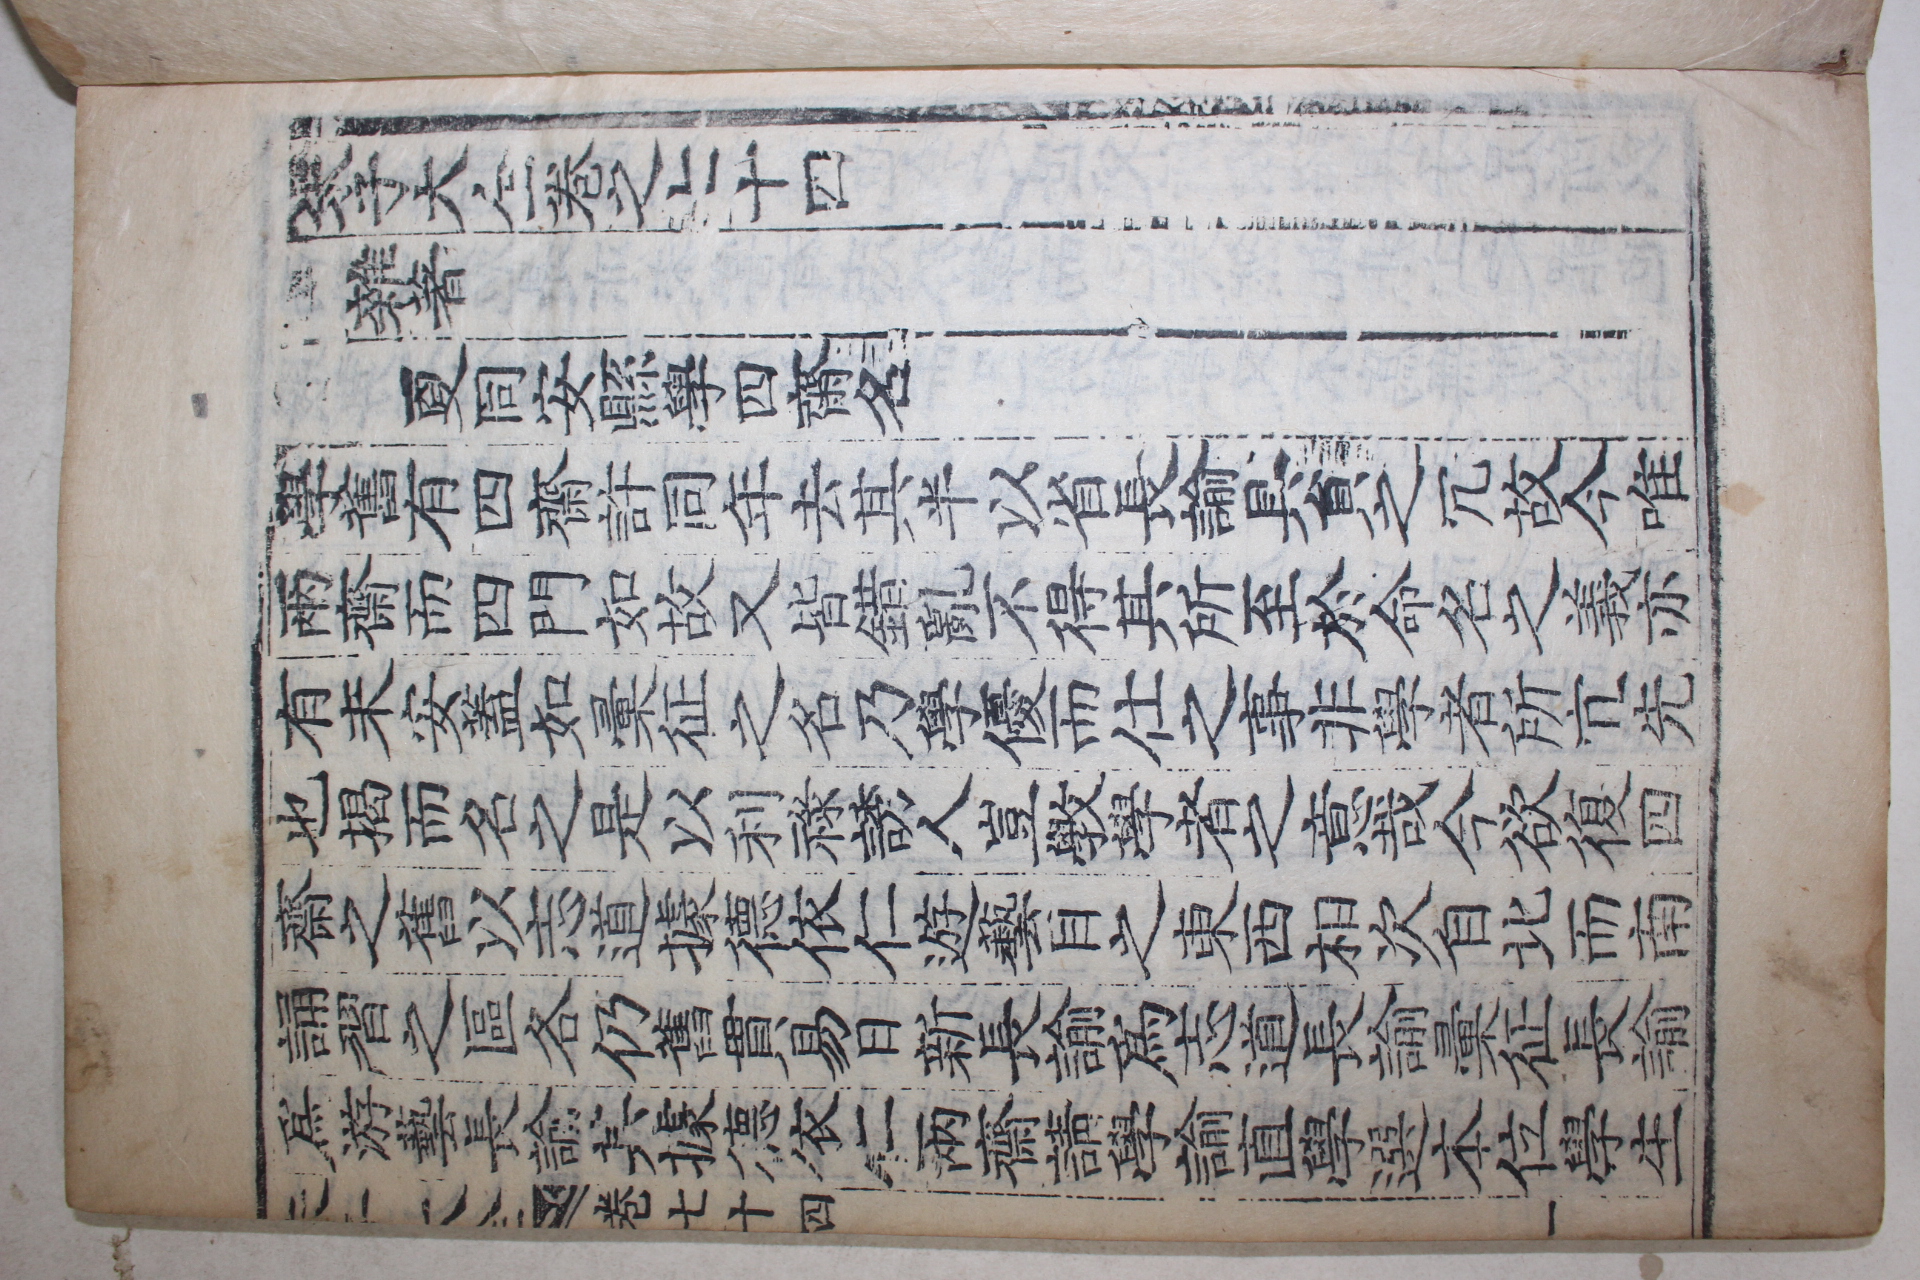 朱子大全卷之七十四
雜著
更同安縣學四齋名
學舊有四齋計同年去其半以省長諭具員之冗故今唯
兩齋而四門如故又皆錯亂不得其所至於命名之義亦
有未安蓋如彙征之名乃學優而仕之事非學者所宜先
也揭而名之是以利祿誘人豈敎學者之意哉今欲復四
齋之舊以志道據德依仁游藝目之東西相次自北而南
誦習之區各仍舊貫易日新長諭爲志道長諭彙征長諭
爲游藝長諭其據德依仁兩齋請學諭直學選本位學生
卷七十四 一